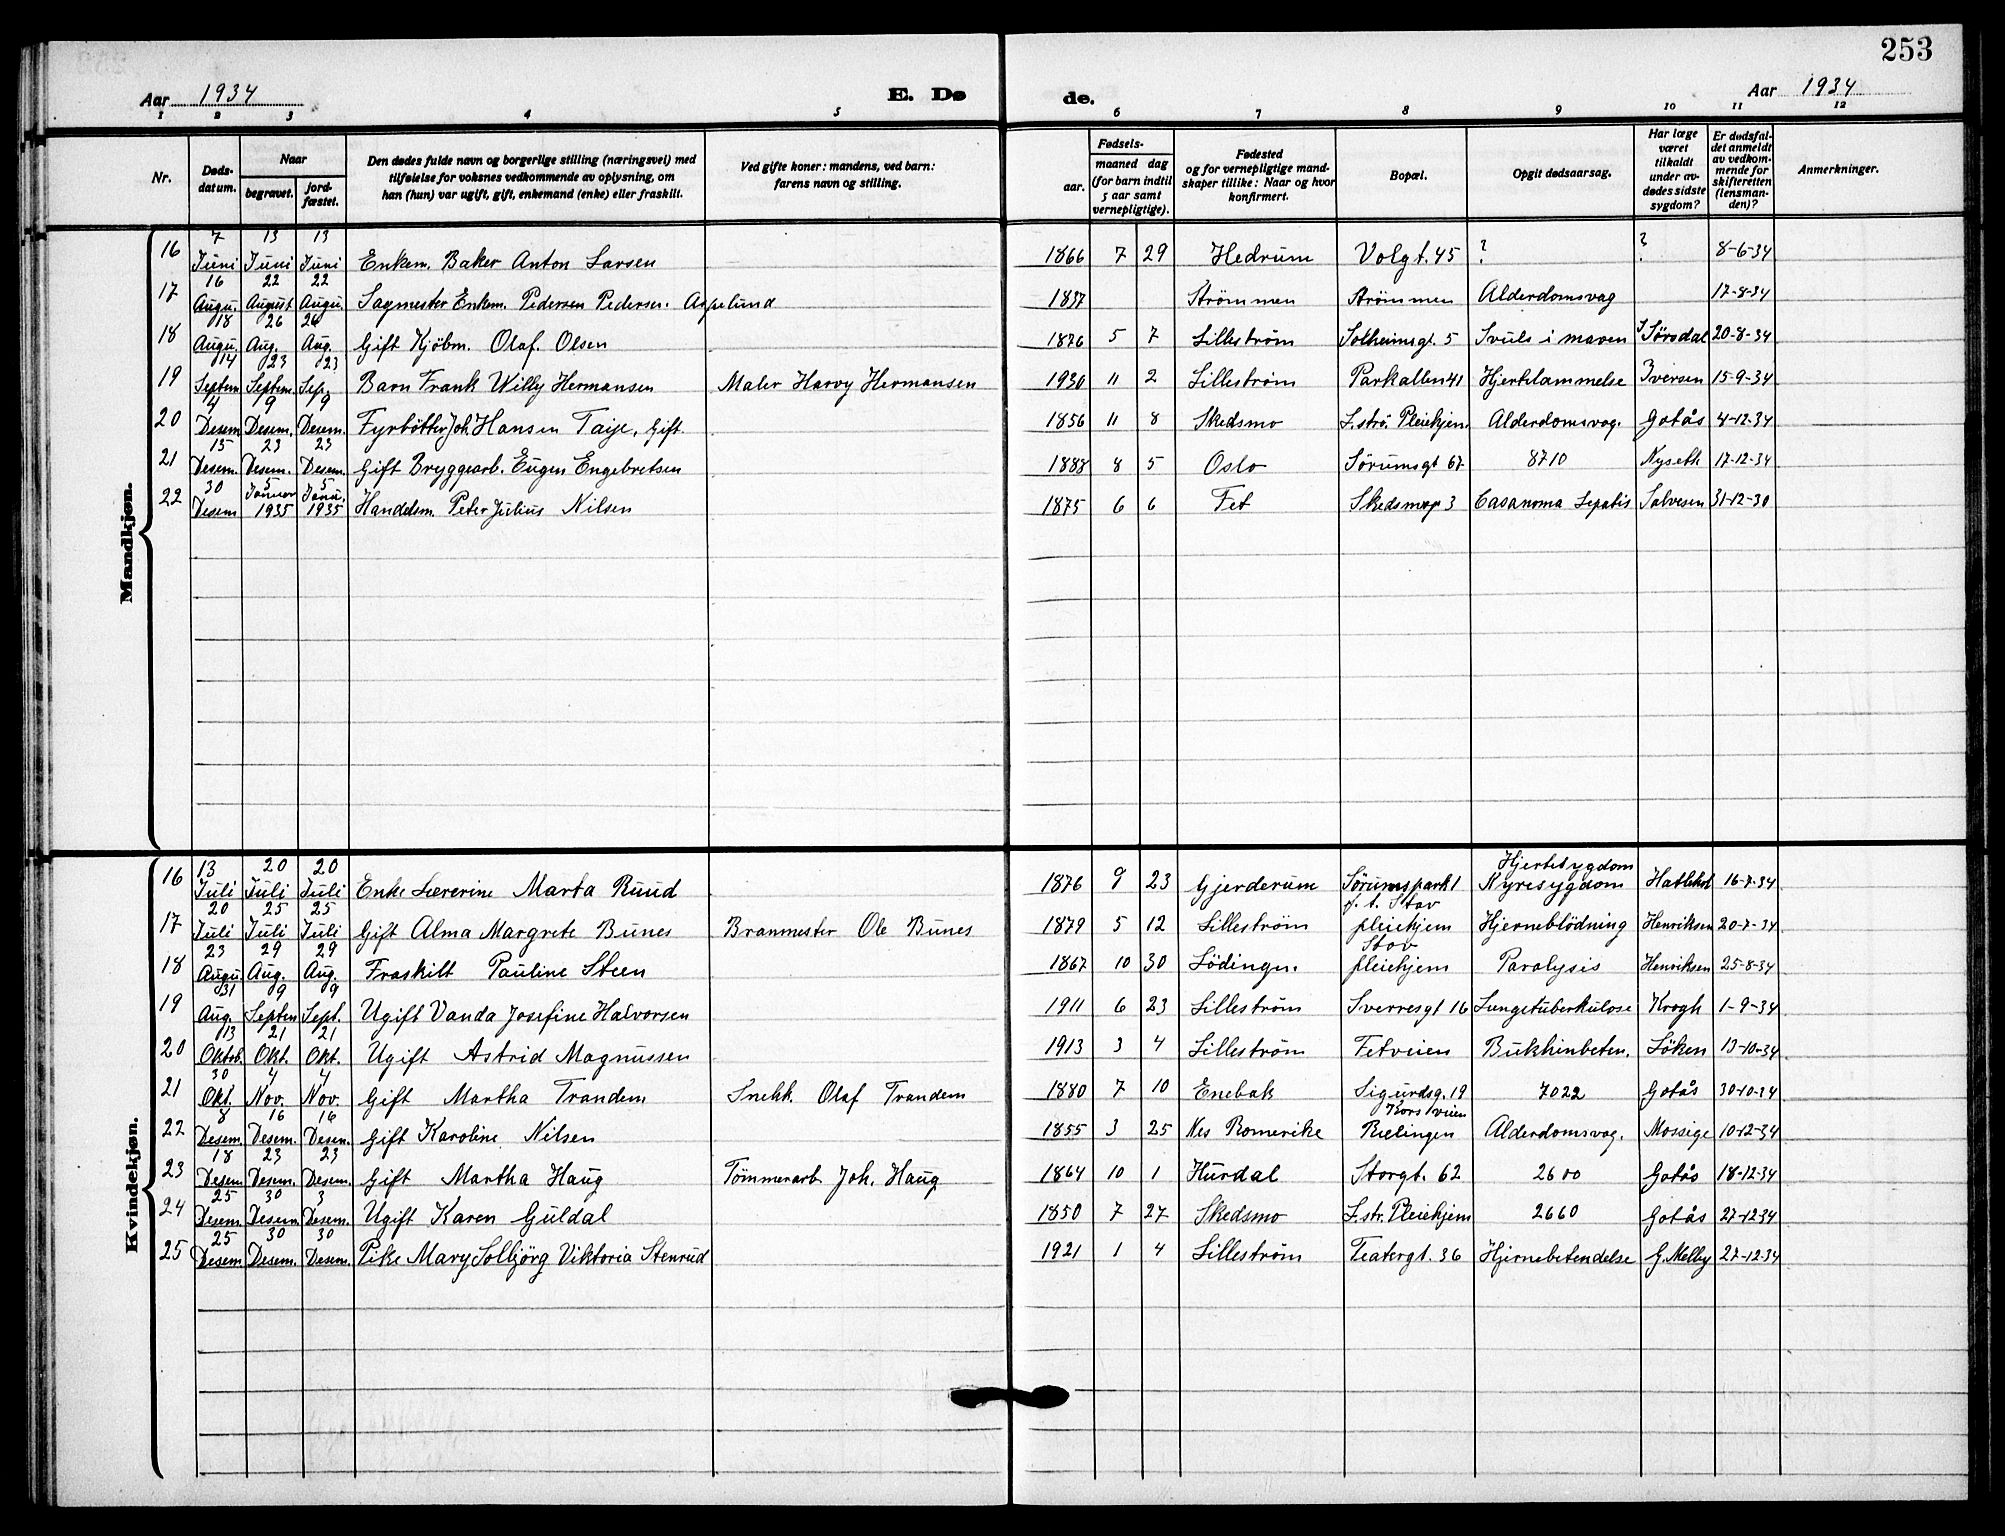 253
Aar 1934 E. Dø de. Aar 1934
1 2 3 4 5 6 7 8 9 10 11 12
Nr. Døds-datum. Naar begravet. jord-fæstet. Den dødes fulde navn og borgerlige stilling (næringsvei) med tilføielse for voksnes vedkommende av oplysning, om han (hun) var ugift, gift, enkemand (enke) eller fraskilt. Ved gifte koner: mandens, ved barn: farens navn og stilling. Fødsels- aar. maaned dag (for barn indtil 5 aar samt vernepligtige). Fødested og for vernepligtige mandskaper tillike: Naar og hvor konfirmert. Bopæl. Opgit dødsaarsag. Har læge været tilkaldt under avdødes sidste sygdom? Er dødsfaldet anmeldt av vedkommende for skifteretten (lensmanden)? Anmerkninger.
Mandkjøn.
16 7 Juni 13 Juni 13 Juni Enkem. Baker Anton Larsen 1866 7 29 Hedrum Volgt. 45 ? ? 8-6-34
17 16 Augu. 22 August 22 Augu. Sagmester Enkem. Pedersen Pedersen. Aspelund 1837 Strömmen Strömmen Alderdomsvag 17-8-34
18 18 Augu. 26 Aug. 26 Aug. Gift Kjöbm. Olaf. Olsen 1876 5 7 Lilleström Solheimsgt. 5 Svuls i maven Sörsdal 20-8-34
19 14 Septem 23 Septem. 23 Sep. Barn Frank Willy Hermansen Maler Harry Hermansen 1930 11 2 Lilleström Parkallen 41 Hjertelammelse Iversen 15-9-34
20 4 Desem 9 Desem. 9 Desem. Fyrbötter Joh. Hansen Taije, Gift. 1856 11 8 Skedsmo L.strö. Pleiehjem. Alderdomsvag. Gotås 4-12-34
21 15 Desem. 23 Desem. 23 Desem. Gift Bryggearb. Eugen Engebretsen 1888 8 5 Oslo Sörumsgt 67 8710 Nyseth 17-12-34
22 30 Desem 5 Januar 1935 5 Janu. 1935 Handelsm. Peter Julius Nilsen 1875 6 6 Fet Skedsmogt 3 Casanoma Lepatis Salvesen 31-12-30
Kvindekjøn.
16 13 Juli 20 Juli 20 Juli Enke Lærerine Marta Ruud 1876 9 23 Gjerderum Sörumspark 1 Hjertesygdom Nyresygdom 16-7-34
17 20 Juli 25 Juli 25 Juli Gift Alma Margrete Bunes Branmester Ole Bunes 1879 5 12 Lilleström f. t. Stav pleiehjem Hjerneblödning Henriksen 20-7-34
18 23 Augu 29 Aug. 29 Aug. Fraskilt Pauline Steen 1867 10 30 Lödingen. Stav pleiehjem Paralysis Henriksen 25-8-34
19 31 Aug. 9 Septem 9 Sept. Ugift Vanda Josefine Halvorsen 1911 6 23 Lilleström Sverresgt 16 Lungetuberkulose Krogh 1-9-34
20 13 Oktob. 21 Okt. 21 Okt. Ugift Astrid Magnussen 1913 3 4 Lilleström Fetveien Bukhinbeten. Löken 13-10-34
21 30 Okt. 4 Nov. 4 Nov. Gift Martha Trandem Snekk. Olaf Trandem 1880 7 10 Enebak Sigurdsg. 19 7022 Gotås 30-10-34
22 8 Desem. 16 Desem. 16 Desem. Gift Karoline Nilsen 1855 3 25 Nes Romerike Rælingen Alderdomsvag. Mossige 10-12-34
23 18 Desem 23 Desem. 23 Desem. Gift Martha Haug Tömmerarb. Joh. Haug 1864 10 1 Hurdal Storgt. 62 2600 Gotås 18-12-34
24 25 Desem. 30 Desem. 3 Desem. Ugift Karen Guldal 1850 7 27 Skedsmo L.str. Pleiehjem 2660 Gotås 27-12-34
25 25 Desem 30 Desem. 30 Desem. Pike Mary Solbjörg Viktoria Stenrud 1921 1 4 Lilleström Teatergt. 36 Hjernebetendelse G. Melby 27-12-34